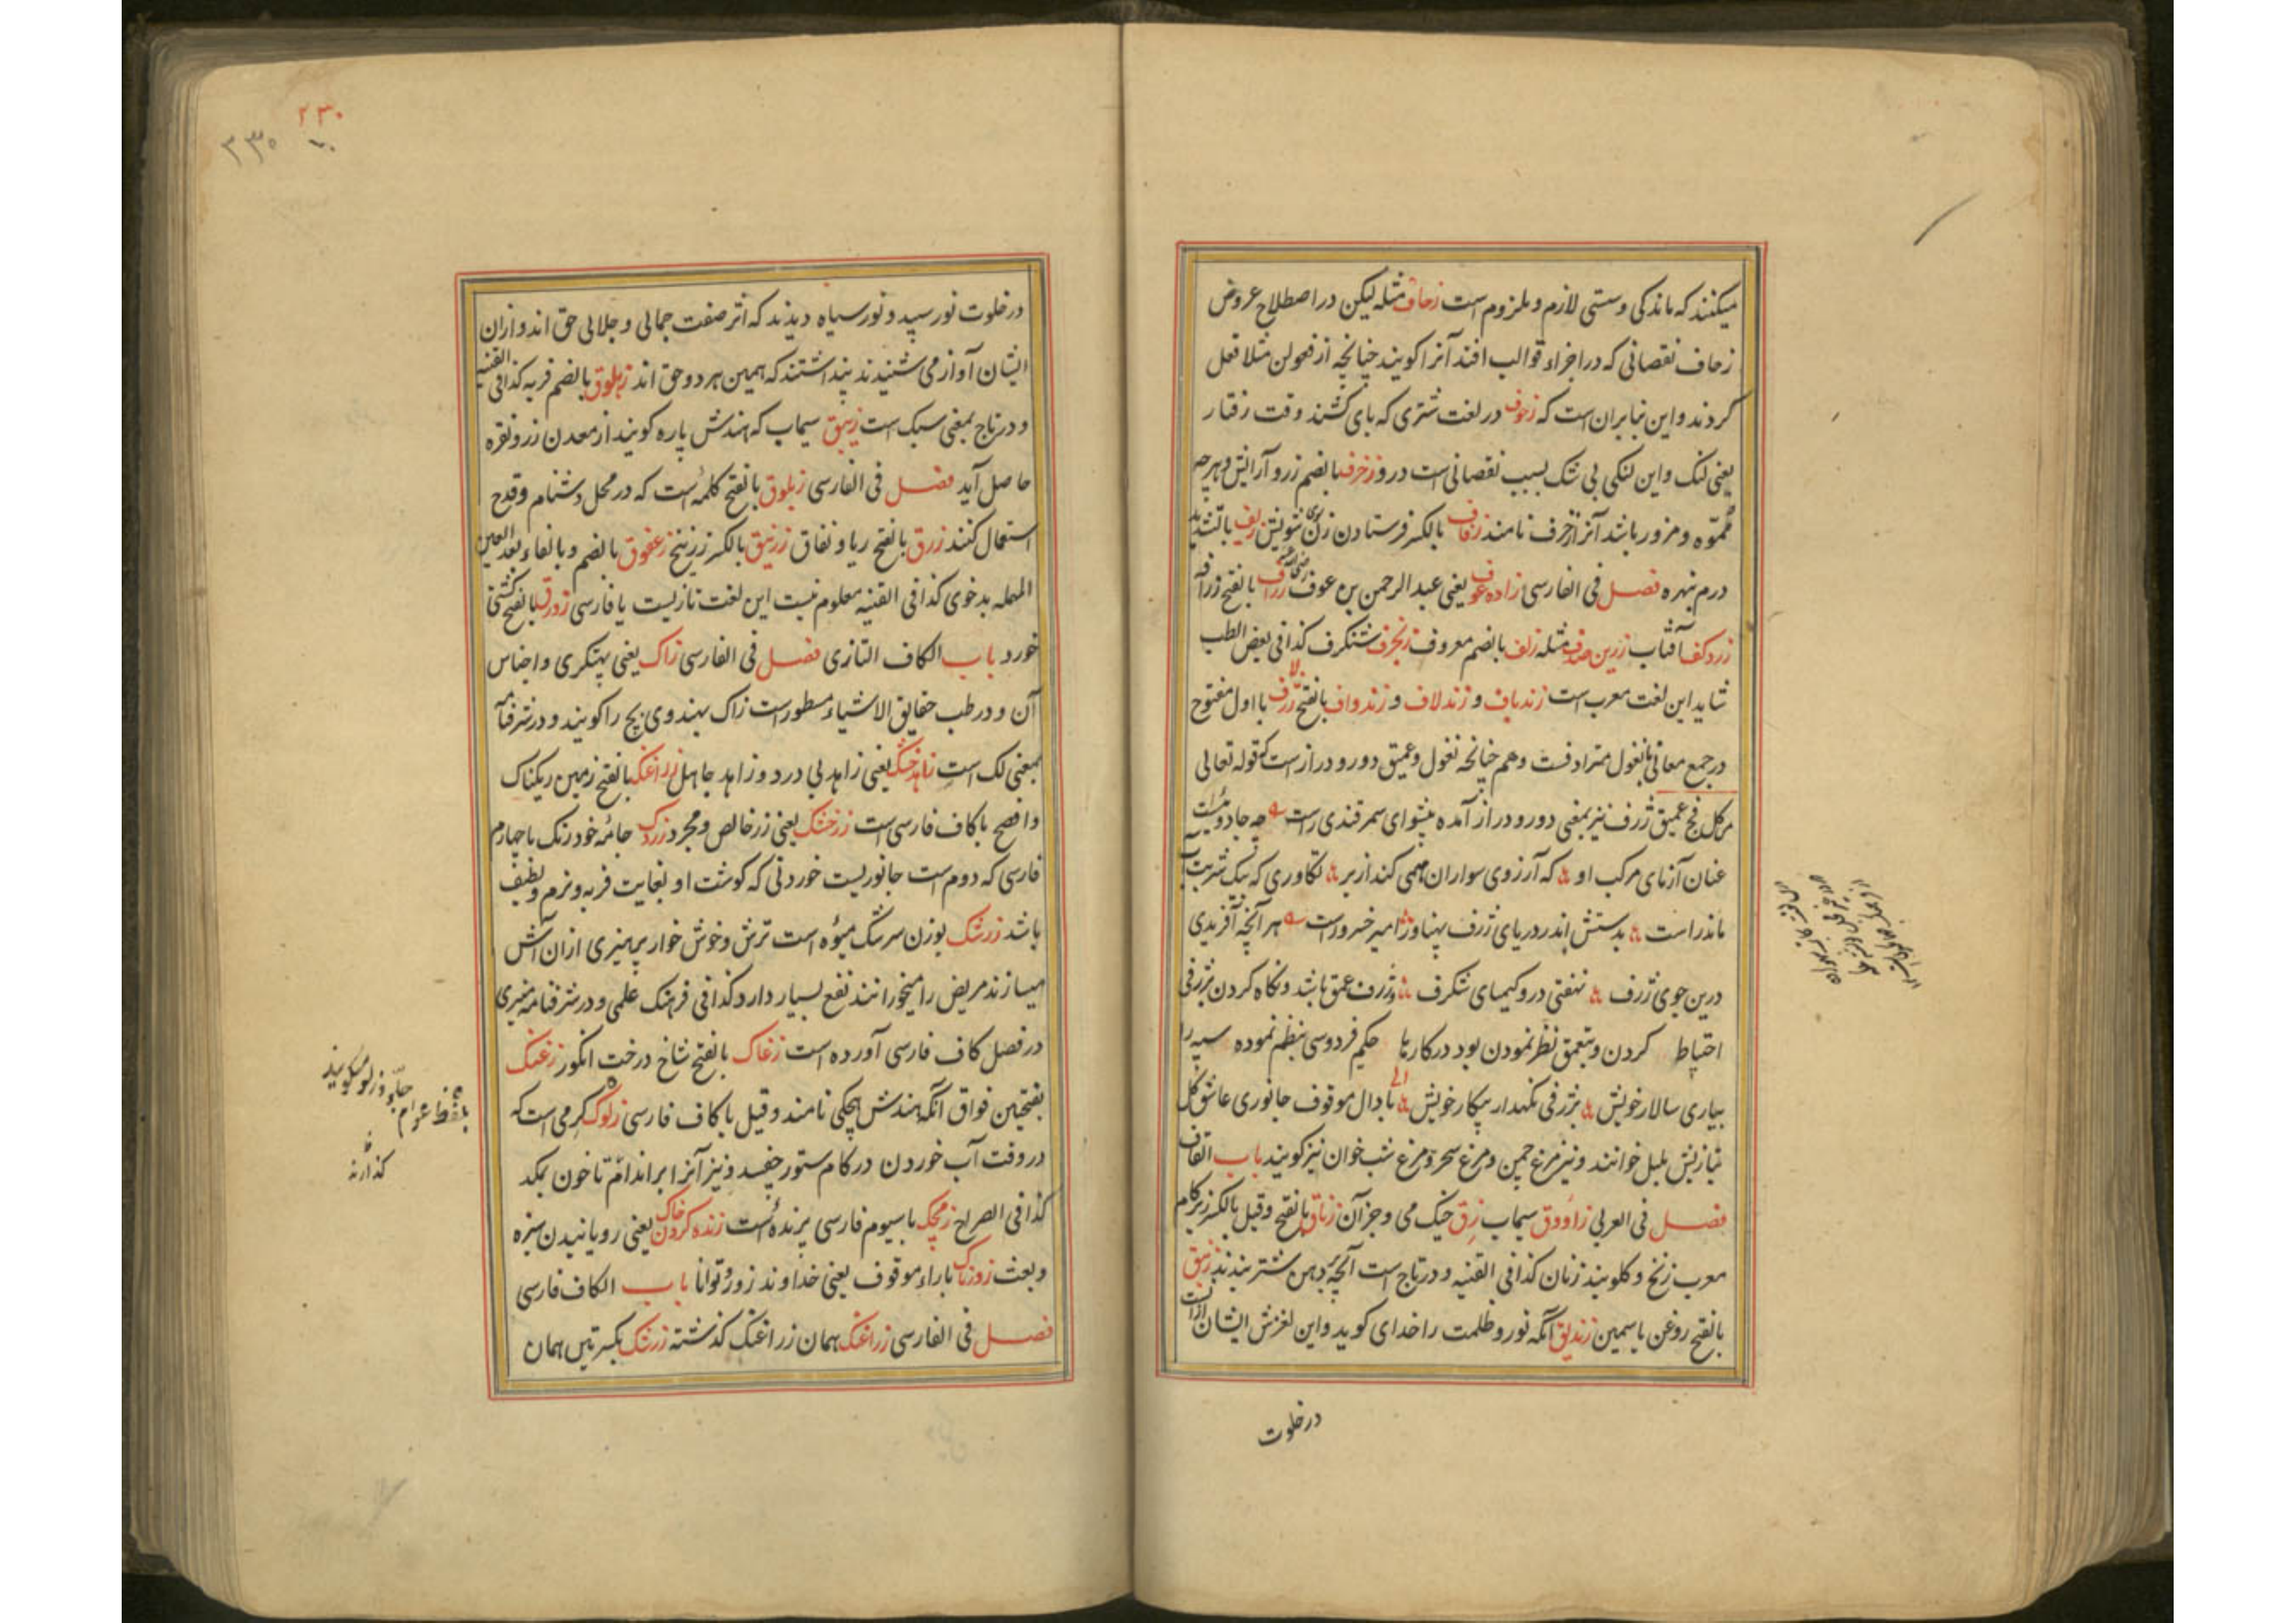 میکنند که ماندکی و سستی لازم و ملزوم است زحاف مثله لیکن در اصطلاح عروض
زحاف نقصانی که در اجزاء قوالب افتد آنرا کویند چنانچه از فعولن مثلا فعل
کردند و این بنابران است که زحوف در لغت شتری که پای کشند وقت رفتار
یعنی لنک و این لنکی بی شک بسبب نقصانی است درو زخرف بالضم زر و آرایش و هرچه
مموّه و مزور باشد آنرا زخرف نامند زفاف بالکسر فرستادن زن بوی شویش زیف بالتشدید
درم نبهره فصل فی الفارسی زاده عوف یعنی عبد الرحمن بن عوف زراف بالفتح زرافه
زردکف آفتاب زرین صدف مثله زلف بالضم معروف زنجرف شنکرف کذا فی بعض الطب
شاید این لغت معرب است زندباف و زندلاف و زندواف بالفتح ژرف با اول مفتوح
در جمع معانی با نغول مترادفست و هم چنانچه نغول و عمیق دور و دراز است کقوله تعالی
من کل فج عمیق ژرف نیز بمعنی دور و دراز آمده پیشوای سمرقندی راست چه جادوئیست
عنان آزمای مرکب او که آرزوی سواران همی کند از بر تکاوری که بیک شربت آب
ماند راست بدستش اندر دریای ژرف پهناور امیر خسرو راست هر آنچه آفریدی
درین جوی ژرف نهفتی درو کیمیای شکرف و ژرف عمق باشد و نکاه کردن بژرفی
احتیاط کردن و بتعمق نظر نمودن بود در کارها حکیم فردوسی بنظم نموده سپه را
بیاری سالار خویش بژرفی نکهدار پیکار خویش با دال موقوف جانوری عاشق کل
بتازیش بلبل خوانند و نیز مرغ چمن و مرغ سحر و مرغ شب خوان نیز کویند باب القاف
فصل فی العربی زاووق سیماب زق خیک می و جز آن زناق بالفتح و قیل بالکسر زیر کام
معرب زنخ و کلوبند زنان کذا فی القنیه و در تاج است آنچه بر دهن شتر بندند زنبق
بالفتح روغن یاسمین زندیق آنکه نور و ظلمت را خدای کوید و این لغزش ایشان ازانست
در خلوت
۲۳۰
۲۳۰
در خلوت نور سپید و نور سیاه دیدند که اثر صفت جمالی و جلالی حق اند و ازان
ایشان آواز می شنیدند پنداشتند که همین هر دو حق اند زهلوق بالضم فربه کذا فی القنیه
و در تاج بمعنی سبک است زیبق سیماب که هندش پاره کویند از معدن زر و نقره
حاصل آید فصل فی الفارسی زبلوق بالفتح کلمه است که در محل دشنام و قدح
استعمال کنند زرق بالفتح ریا و نفاق زرنیق بالکسر زرنیخ زعفوق بالضم و بالفاء بعد العین
المهمله بدخوی کذا فی القنیه معلوم نیست این لغت تازیست یا فارسی زورق بالفتح کشتی
خورد باب الکاف التازی فصل فی الفارسی زاک یعنی پهتکری و اجناس
آن و در طب حقایق الاشیاء مسطور است زاک بهندوی بچ را کویند و در شرفنامه
بمعنی لک است زاهد خشک یعنی زاهد بی درد و زاهد جاهل زراغنک بالفتح زمین ریکناک
و افصح با کاف فارسی است زر خشک یعنی زر خالص و مجرد زردک جامه خود رنک با چهارم
فارسی که دوم است جانوریست خوردنی که کوشت او بغایت فربه و نرم و لطیف
باشد زرشک بوزن سرشک میوه است ترش و خوش خوار پرهیزی ازان آش
میسازند مریض را میخورانند نفع بسیار دارد کذا فی فرهنک علمی و در شرفنامه منیری
در فصل کاف فارسی آورده است زغاک بالفتح شاخ درخت انکور زغنک
بفتحین فواق آنکه هندش هچکی نامند و قیل با کاف فارسی زلوک کرمی است که
در وقت آب خوردن در کام ستور چفسد و نیز آنرا بر اندام تا خون بمکد
کذا فی الصراح زمچک با سیوم فارسی پرنده است زنده کردن خاک یعنی رویانیدن سبزه
و بعث زورناک با راء موقوف یعنی خداوند زور و توانا باب الکاف فارسی
فصل فی الفارسی زراغنک همان زراغنک کذشته زرنک بکسرتین همان